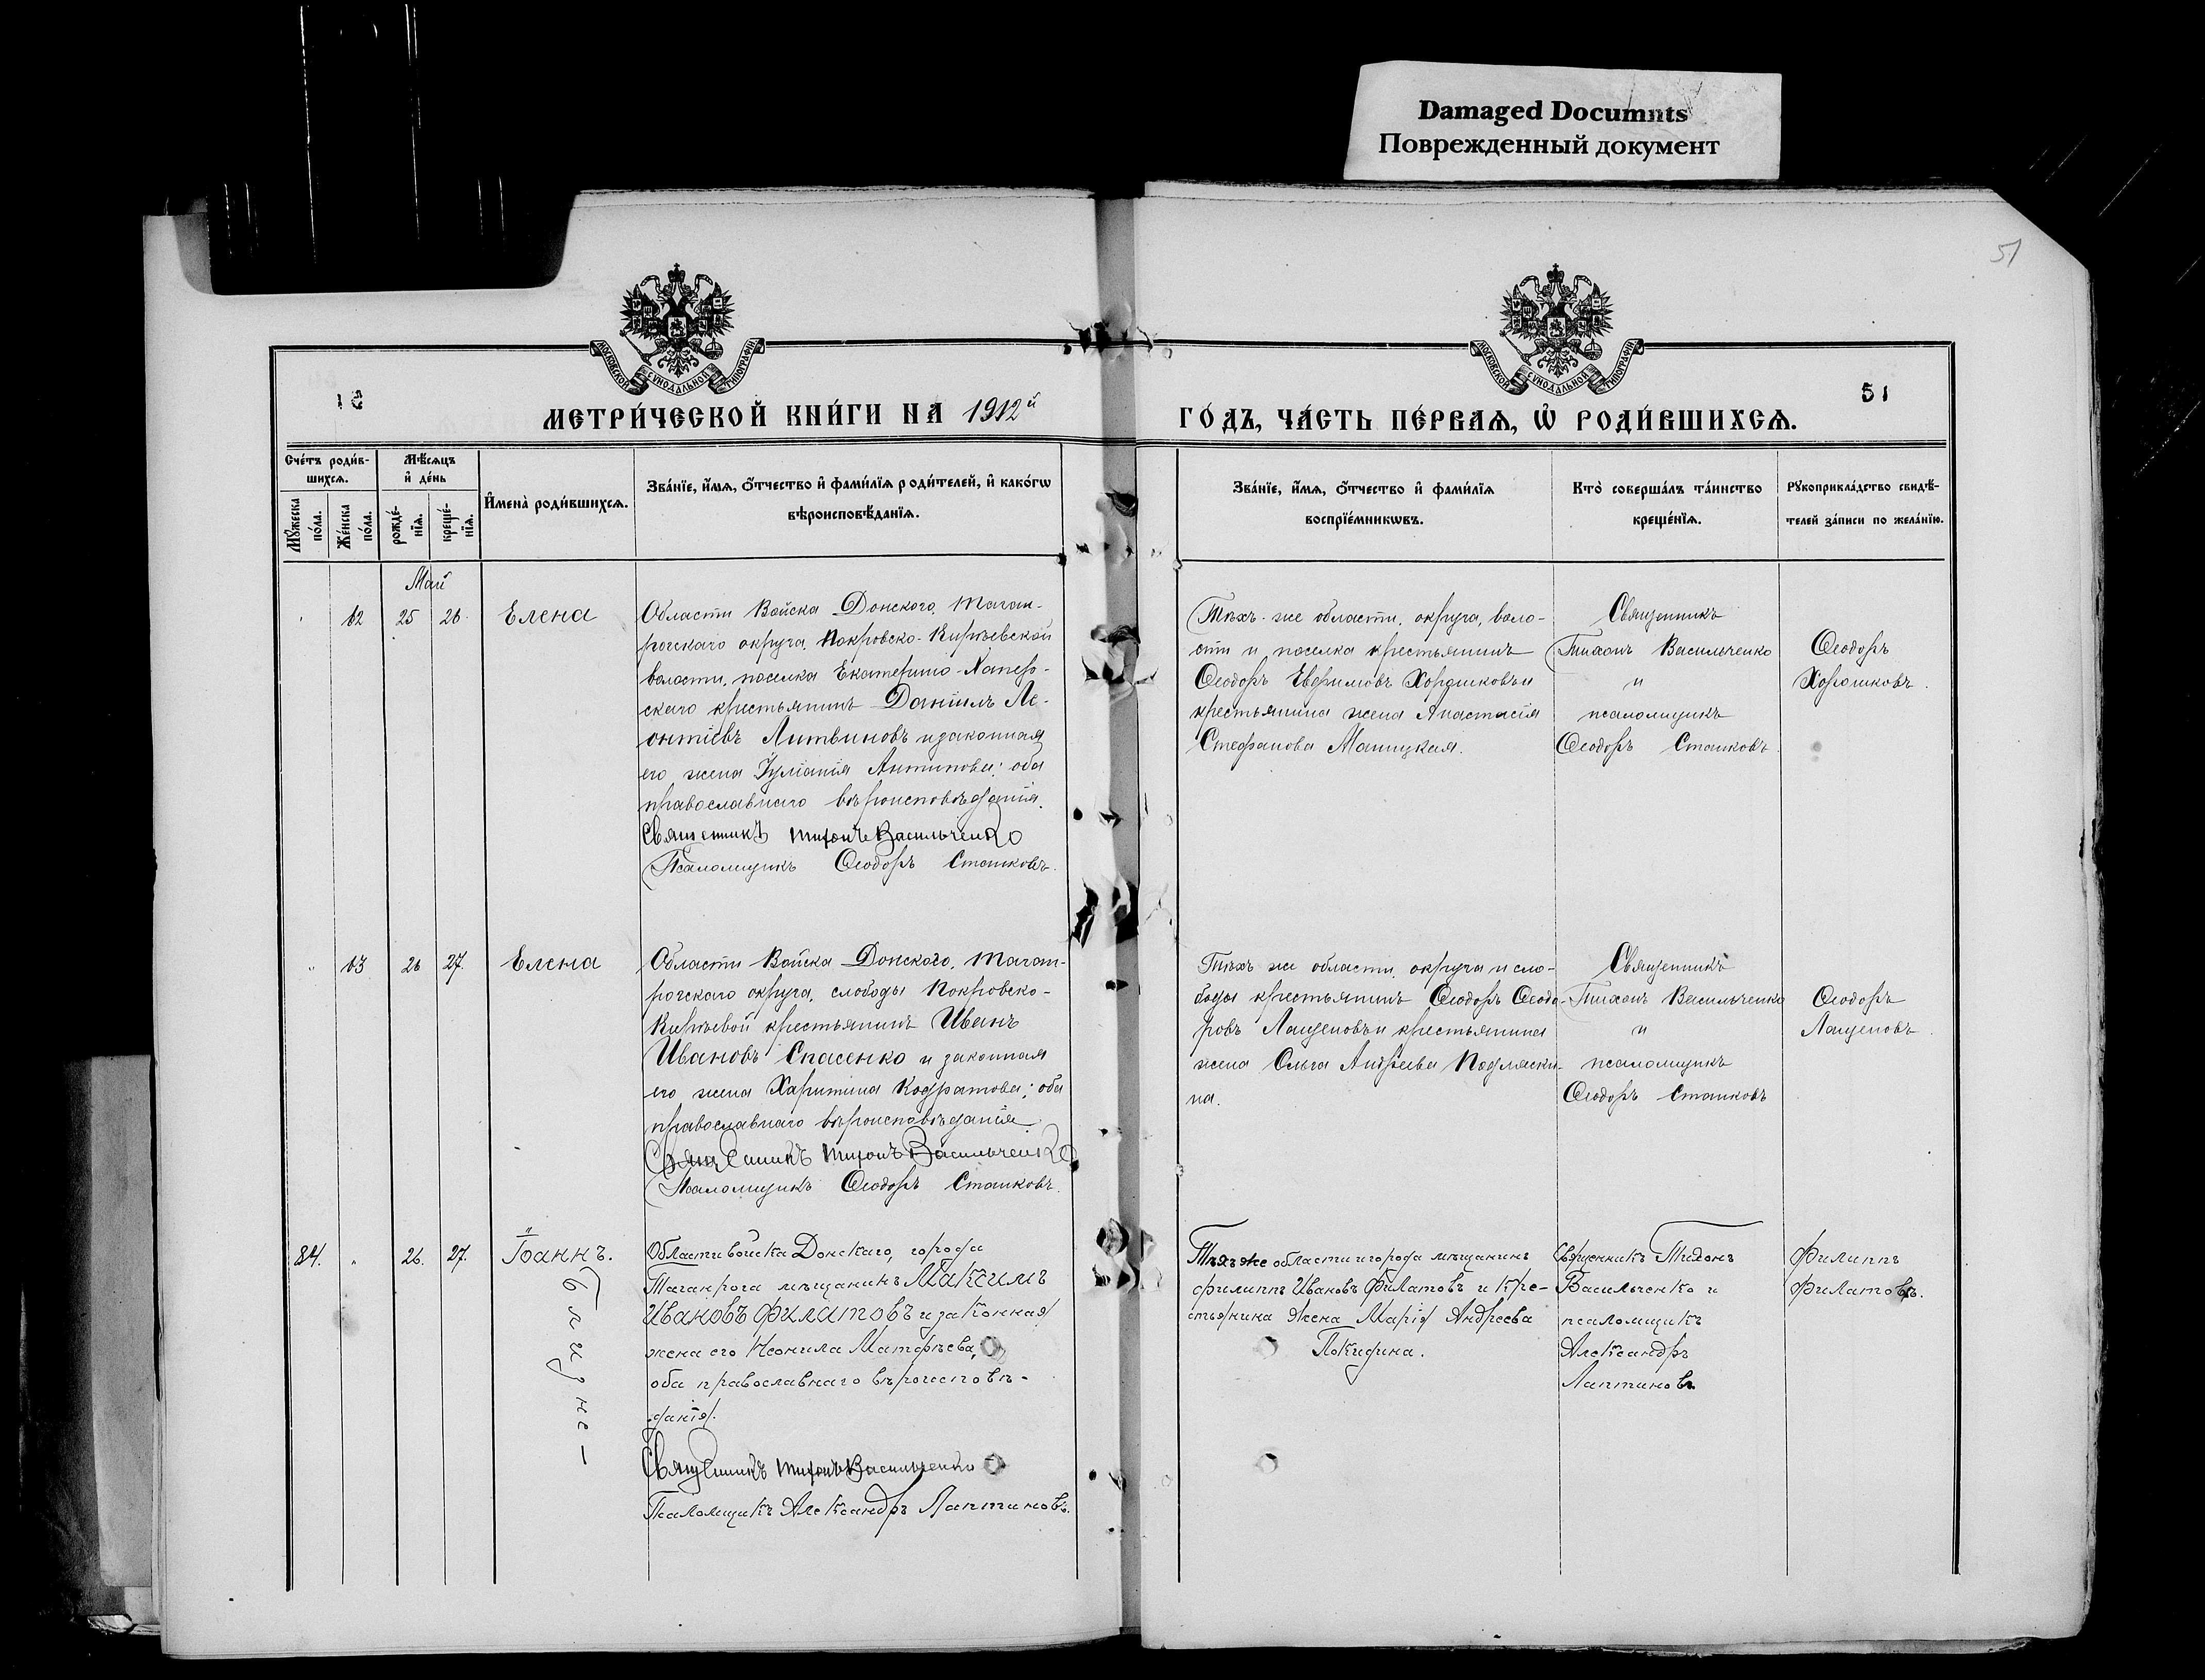 Damaged Documnts
Поврежденный документ
51
МОСКОВСКОЙ СУНОДАЛЬНОЙ ТИПОГРАФІИ
МОСКОВСКОЙ СУНОДАЛЬНОЙ ТИПОГРАФІИ
51
МЕТРИ́ЧЕСКОЙ КНИ́ГИ НА 1912й
ГО́ДЪ, ЧА́СТЬ ПЕ́РВАѦ, Ѡ҆ РОДИ́ВШИХСѦ.
Сче́тъ роди́в-
шихсѧ.
Мꙋ́жеска
по́ла.
Же́нска
по́ла.
Мѣ́сѧцъ
и҆ де́нь
рожде́-
нїѧ.
креще́-
нїѧ.
И҆мена̀ роди́вшихсѧ.
Зва́нїе, и҆́мѧ, ѻ҆́тчество и҆ фами́лїѧ роди́телей, и҆ како́гѡ
вѣроисповѣ́данїѧ.
Зва́нїе, и҆́мѧ, ѻ҆́тчество и҆ фами́лїѧ
воспрїе́мникѡвъ.
Кто̀ соверша́лъ та́инство
креще́нїѧ.
Рꙋкоприкла́дство свидѣ́-
телей за́писи по жела́нїю.
Май
62 25 26 Елена
Области Войска Донского, Таган-
рогскаго округа, Покровско-Киреевской
волости, поселка Екатерино-Хапер-
скаго крестьянинъ Даніилъ Ле-
онтіевъ Литвиновъ и законная
его жена Іуліанія Антипова; оба
православнаго вѣроисповѣданія.
Священникъ Тихонъ Васильченко
Псаломщикъ Ѳеодоръ Сташковъ.
Тѣхъ-же области, округа, воло-
сти и поселка крестьянинъ
Ѳеодоръ Евфимовъ Хорошковъ и
крестьянина жена Анастасія
Стефанова Маницкая.
Священникъ
Тихонъ Васильченко
и
псаломщикъ
Ѳеодоръ Сташковъ.
Ѳеодоръ
Хорошковъ.
63 26 27. Елена
Области Войска Донского, Таган-
рогскаго округа, слободы Покровско-
Киреевой крестьянинъ Иванъ
Ивановъ Спасенко и законная
его жена Харитина Кодратова; оба
православнаго вѣроисповѣданія
Священникъ Тихонъ Васильченко
Псаломщикъ Ѳеодоръ Сташковъ.
Тѣхъ же области, округа и сло-
боды крестьянинъ Ѳеодоръ Ѳеодо-
ровъ Лащеновъ и крестьянина
жена Ольга Андреева Подляски-
на.
Священникъ
Тихонъ Васильченко
и
псаломщикъ
Ѳеодоръ Сташковъ
Ѳеодоръ
Лащеновъ.
84. 26. 27. Іоаннъ.
близне-
Области войска Донскаго, города
Таганрога мѣщанинъ Максимъ
Ивановъ Филатовъ и законная
жена его Неонила Матфѣева,
оба православнаго вѣроисповѣ-
данія.
Священникъ Тихонъ Васильченко
Псаломщикъ Александръ Лаптиновъ.
Тѣхъ же области и города мѣщанинъ
Филиппъ Ивановъ Филатовъ и кре-
стьянина жена Марія Андреева
Священникъ Тихонъ
Васильченко и
псаломщикъ
Александръ
Лаптиновъ
Филиппъ
Филатовъ.